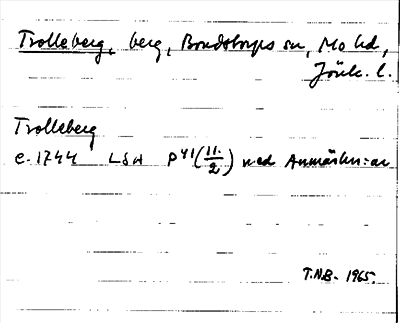 Trolleberg, berg, Bondstorps sn, Mo hd,
Jönk. l.
Trolleberg
c. 1744 LSA P41(11/2) med Anmärkn:ar
T.N.B. 1965.